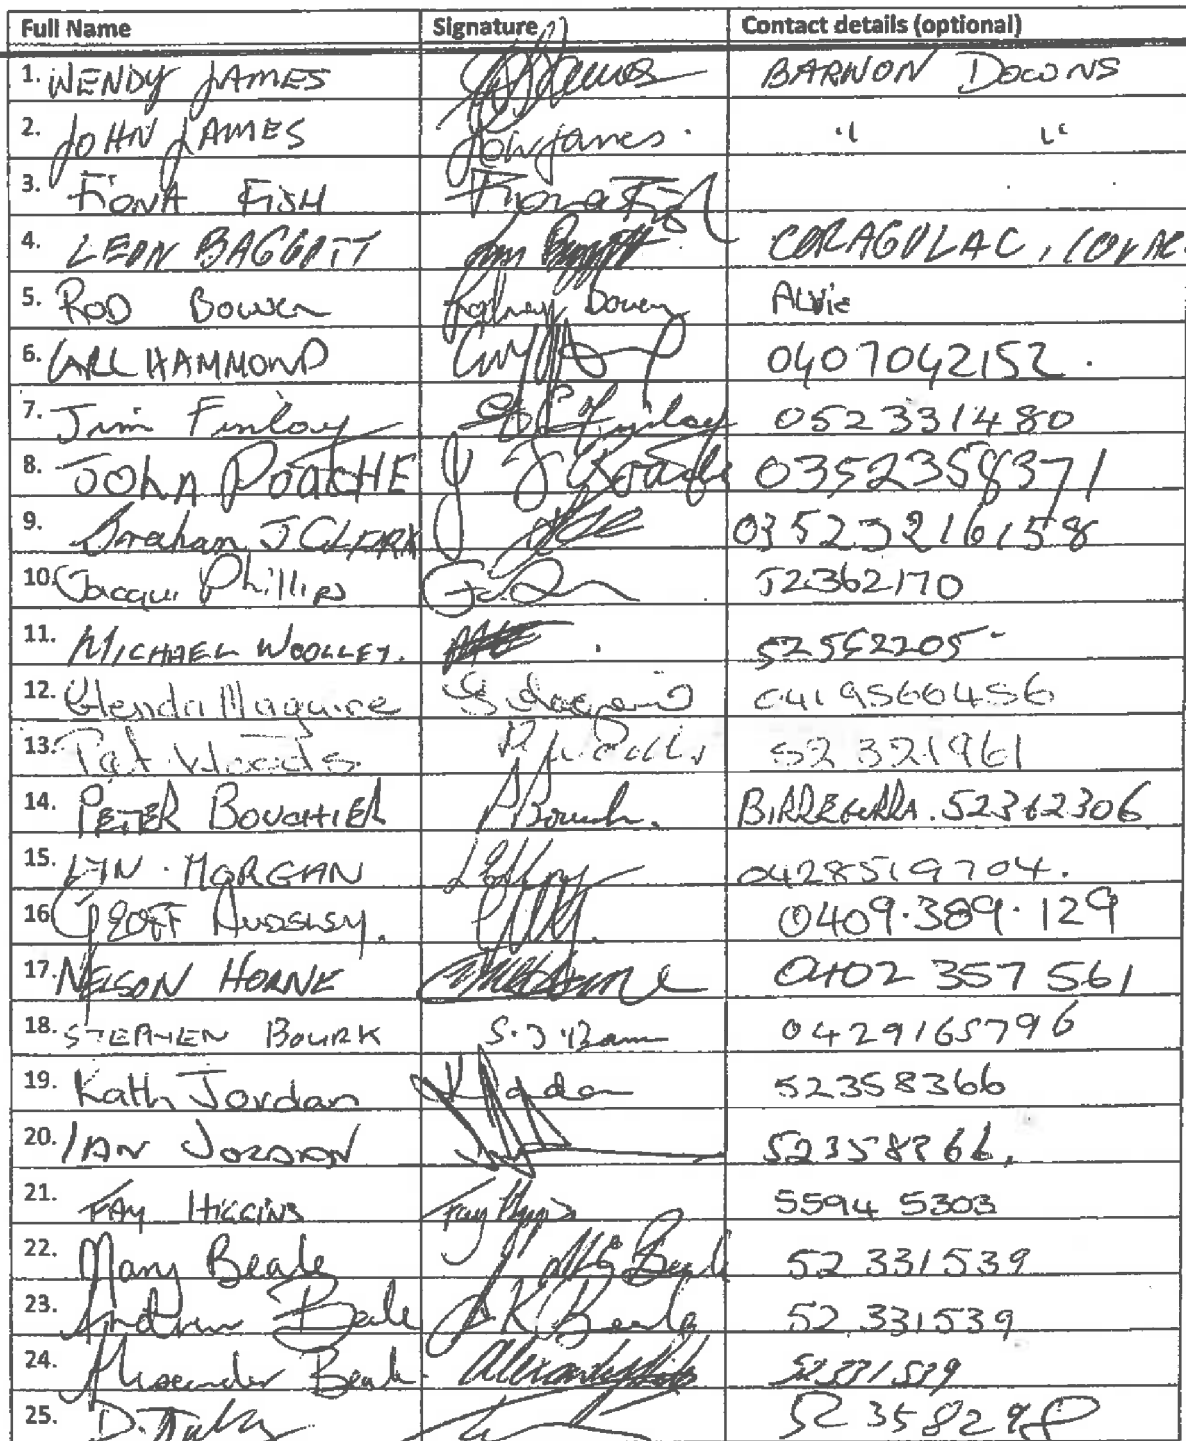 Full Name Signature Contact details (optional)
1. WENDY JAMES James BARWON DOWNS
2. JOHN JAMES John James. " "
3. FIONA FISH Fiona Fish
4. LEON BAGGOTT CORAGULAC, COLAC
5. ROD Bowen Rodney Bowen ALVie
6. CARL HAMMOND 0407042152.
7. Jim Finlay Finlay 0523 31480
8. JOHN POATCHE J 0352358371
9. Graham J CLARK
10. Jacqui Phillips 52362170
11. MICHAEL WOOLLEY. 52362205
12. Glenda Maguire 0419560456
13. Pat Woods 52 321961
14. PETER BOUCHIER P Bouch. BIRREGURRA. 52362306
15. LYN. MORGAN 0428519704.
16. GEOFF AUDSLEY. 0409.389.129
17. NELSON HORNE 0402 357 561
18. STEPHEN BOURK 0429165796
19. Kath Jordan 52358366
20. IAN JORDAN 52358366.
21. FAY HIGGINS Fay Higgins 5594 5303
22. Mary Beale Beale 52 331539
23. Andrew Beale A K Beale 52 331539
24. Alexander Beale. 52331539
25. D.